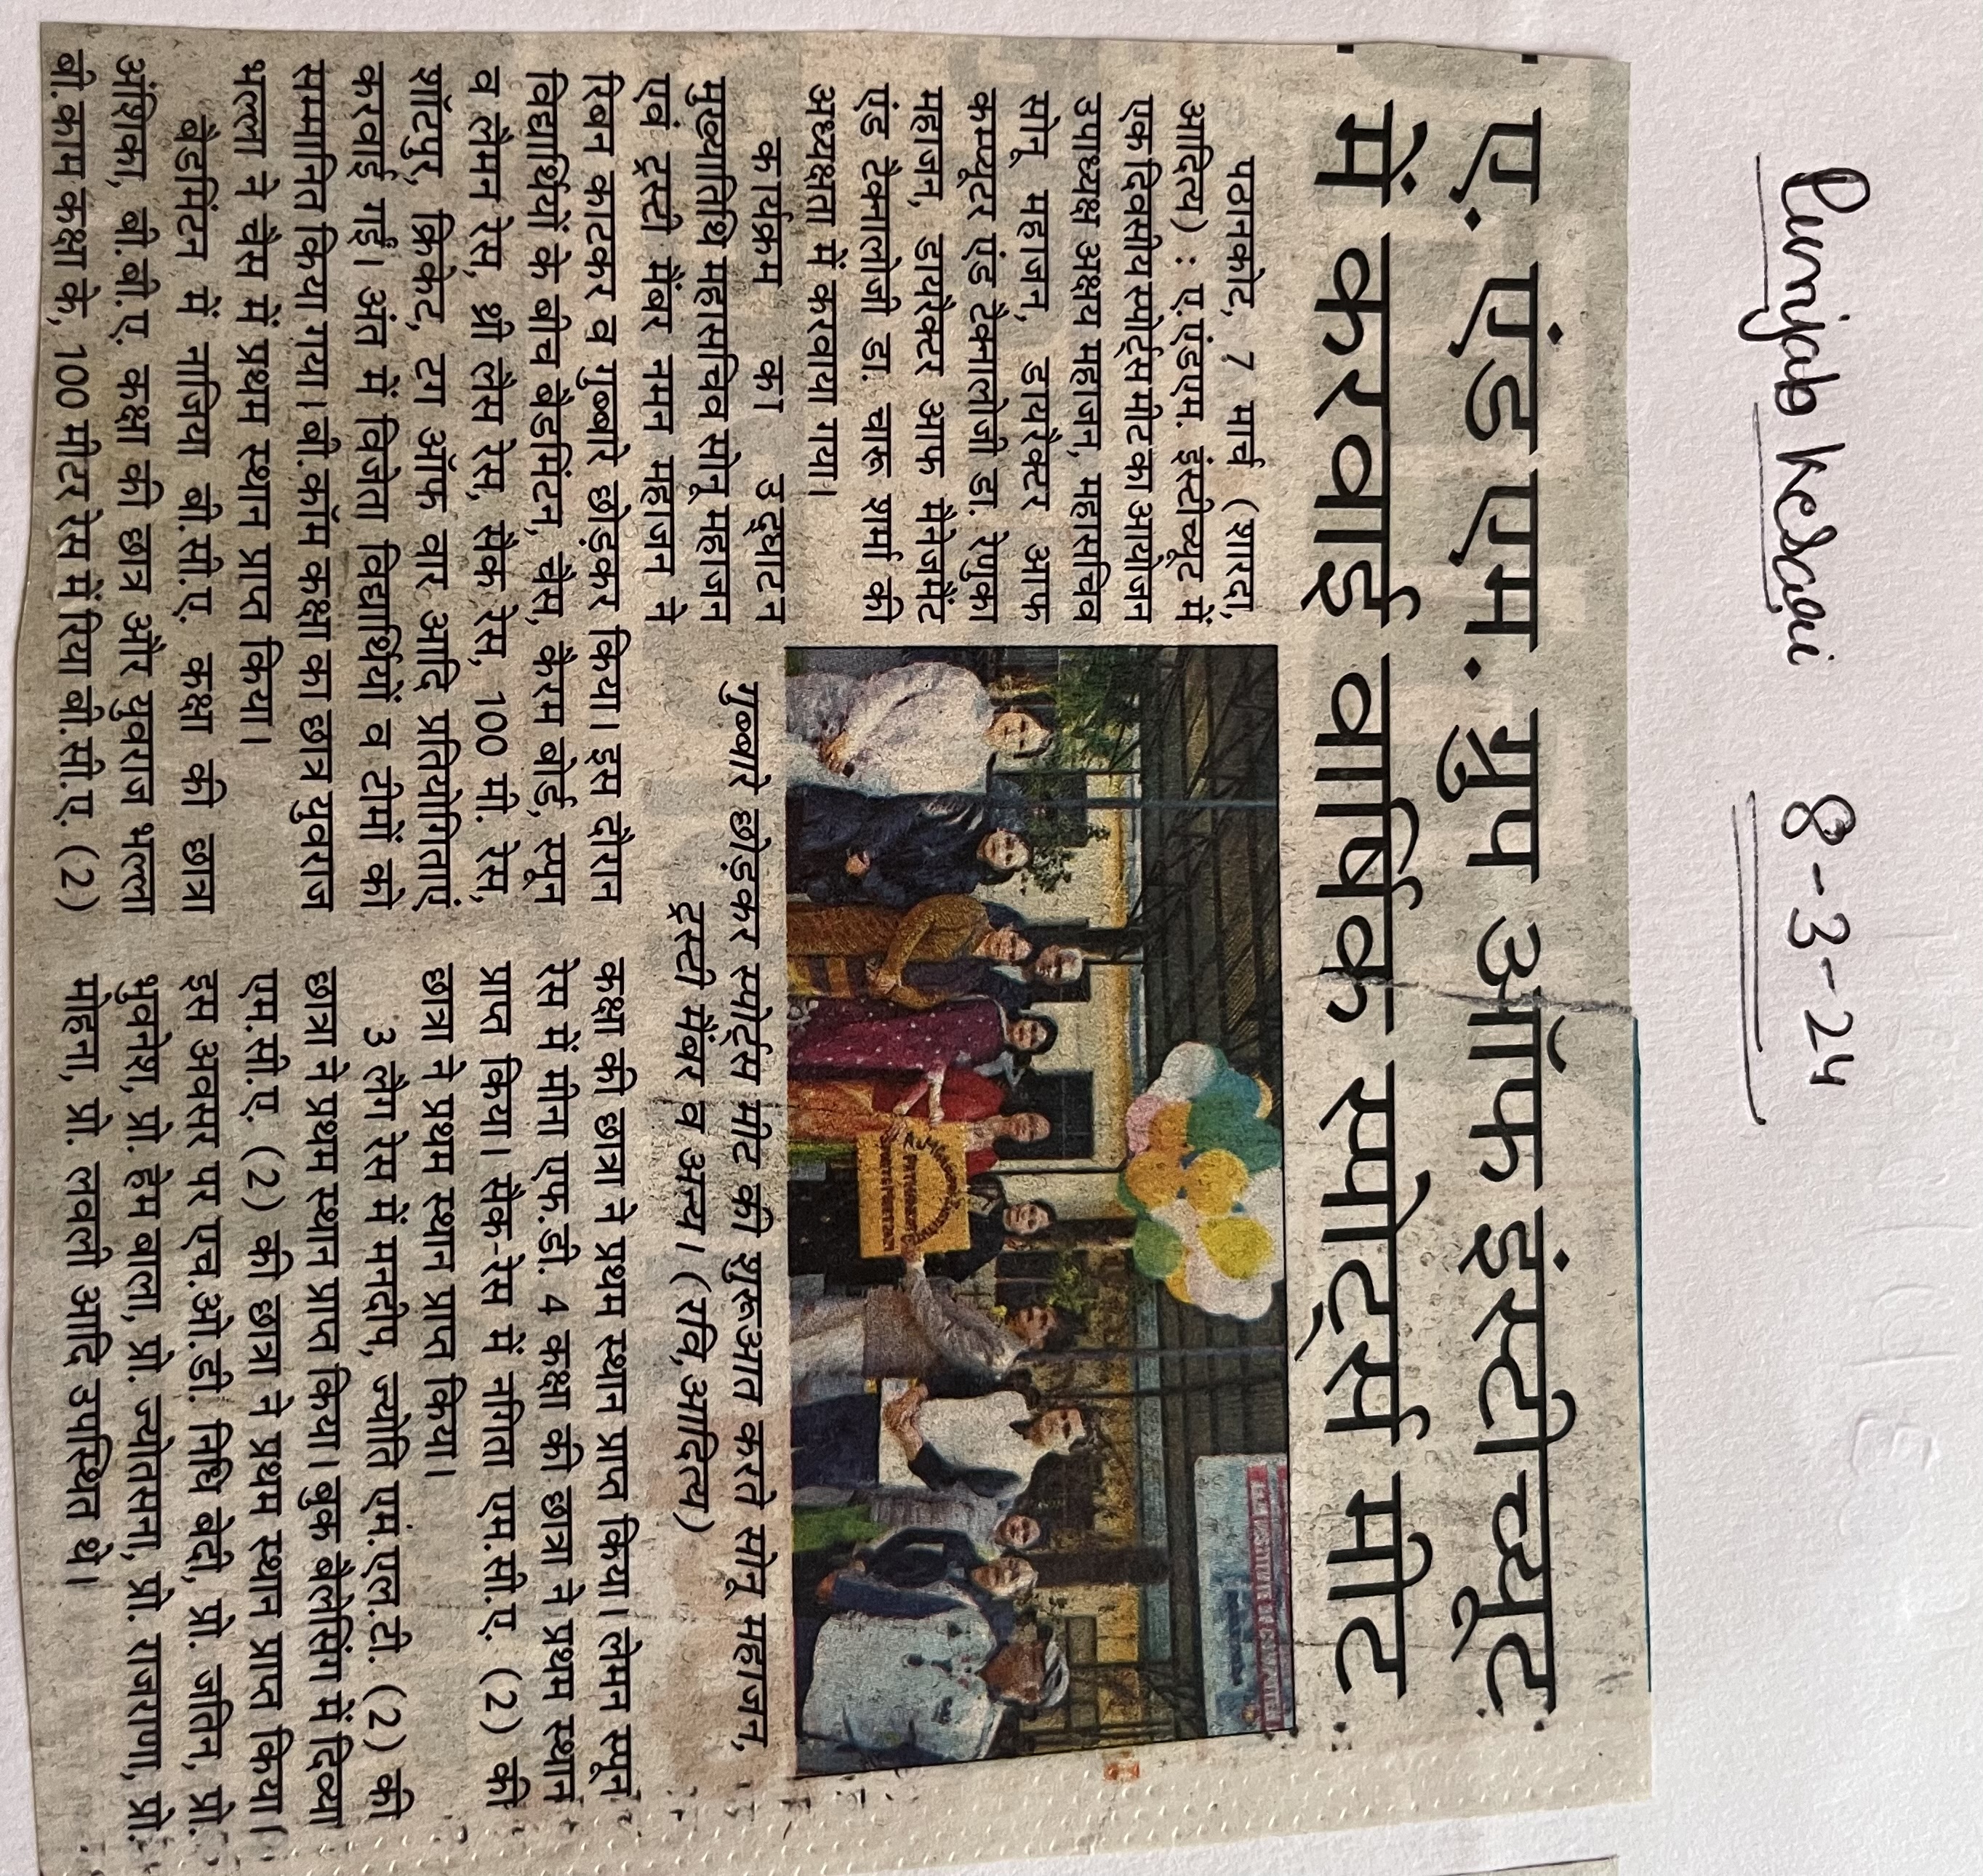 Punjab Kesari 8-3-24
ए. एंड एम. ग्रुप ऑफ इंस्टीच्यूट
में करवाई वार्षिक स्पोर्ट्स मीट
पठानकोट, 7 मार्च (शारदा,
आदित्य) : ए.एंडएम. इंस्टीच्यूट में
एक दिवसीय स्पोर्ट्स मीट का आयोजन
उपाध्यक्ष अक्षय महाजन, महासचिव
सोनू महाजन, डायरैक्टर आफ
कम्प्यूटर एंड टैक्नालोजी डा. रेणुका
महाजन, डायरैक्टर आफ मैनेजमैंट
एंड टैक्नालोजी डा. चारू शर्मा की
अध्यक्षता में करवाया गया।
कार्यक्रम का उद्घाटन
मुख्यातिथि महासचिव सोनू महाजन
एवं ट्रस्टी मैंबर नमन महाजन ने
रिबन काटकर व गुब्बारे छोड़कर किया। इस दौरान
विद्यार्थियों के बीच बैडमिंटन, चैस, कैरम बोर्ड, स्पून
व लैमन रेस, थ्री लैस रेस, सैक रेस, 100 मी. रेस,
शॉटपुट, क्रिकेट, टग ऑफ वार आदि प्रतियोगिताएं
करवाई गईं। अंत में विजेता विद्यार्थियों व टीमों को
सम्मानित किया गया। बी.कॉम कक्षा का छात्र युवराज
भल्ला ने चैस में प्रथम स्थान प्राप्त किया।
बैडमिंटन में नाजिया बी.सी.ए. कक्षा की छात्रा
अंशिका, बी.बी.ए. कक्षा की छात्र और युवराज भल्ला
बी.काम कक्षा के, 100 मीटर रेस में रिया बी.सी.ए. (2)
गुब्बारे छोड़कर स्पोर्ट्स मीट की शुरूआत करते सोनू महाजन,
ट्रस्टी मैंबर व अन्य। (रवि,आदित्य)
कक्षा की छात्रा ने प्रथम स्थान प्राप्त किया। लेमन स्पून
रेस में मीना एफ.डी. 4 कक्षा की छात्रा ने प्रथम स्थान
प्राप्त किया। सैक-रेस में नगिता एम.सी.ए. (2) की
छात्रा ने प्रथम स्थान प्राप्त किया।
3 लैग रेस में मनदीप, ज्योति एम.एल.टी. (2) की
छात्रा ने प्रथम स्थान प्राप्त किया। बुक बैलेसिंग में दिव्या
एम.सी.ए. (2) की छात्रा ने प्रथम स्थान प्राप्त किया।
इस अवसर पर एच.ओ.डी. निधि बेदी, प्रो. जतिन, प्रो.
भुवनेश, प्रो. हेम बाला, प्रो. ज्योतसना, प्रो. राजराणा, प्रो.
मोहना, प्रो. लवली आदि उपस्थित थे।